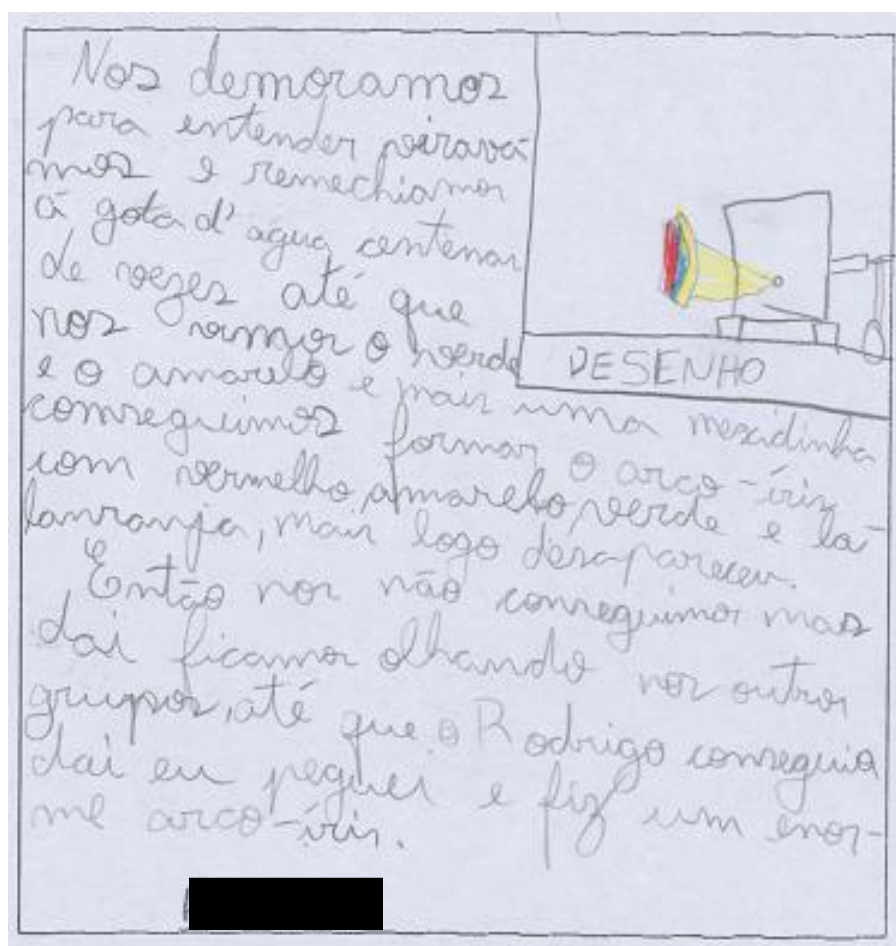 Nos demoramos
para entender virava
mos e remechiamos
a gota d'agua centenas
de vezes até que
nos vimos o verde
e o amarelo e mais uma mexidinha
conseguimos formar o arco-íris
com vermelho, amarelo, verde e la
lanranja, mais logo desapareceu.
Então nos não conseguimos mas
dai ficamos olhando nos outros
grupos, até que o Rodrigo conseguia
dai eu peguei e fiz um enor-
me arco-íris.
DESENHO